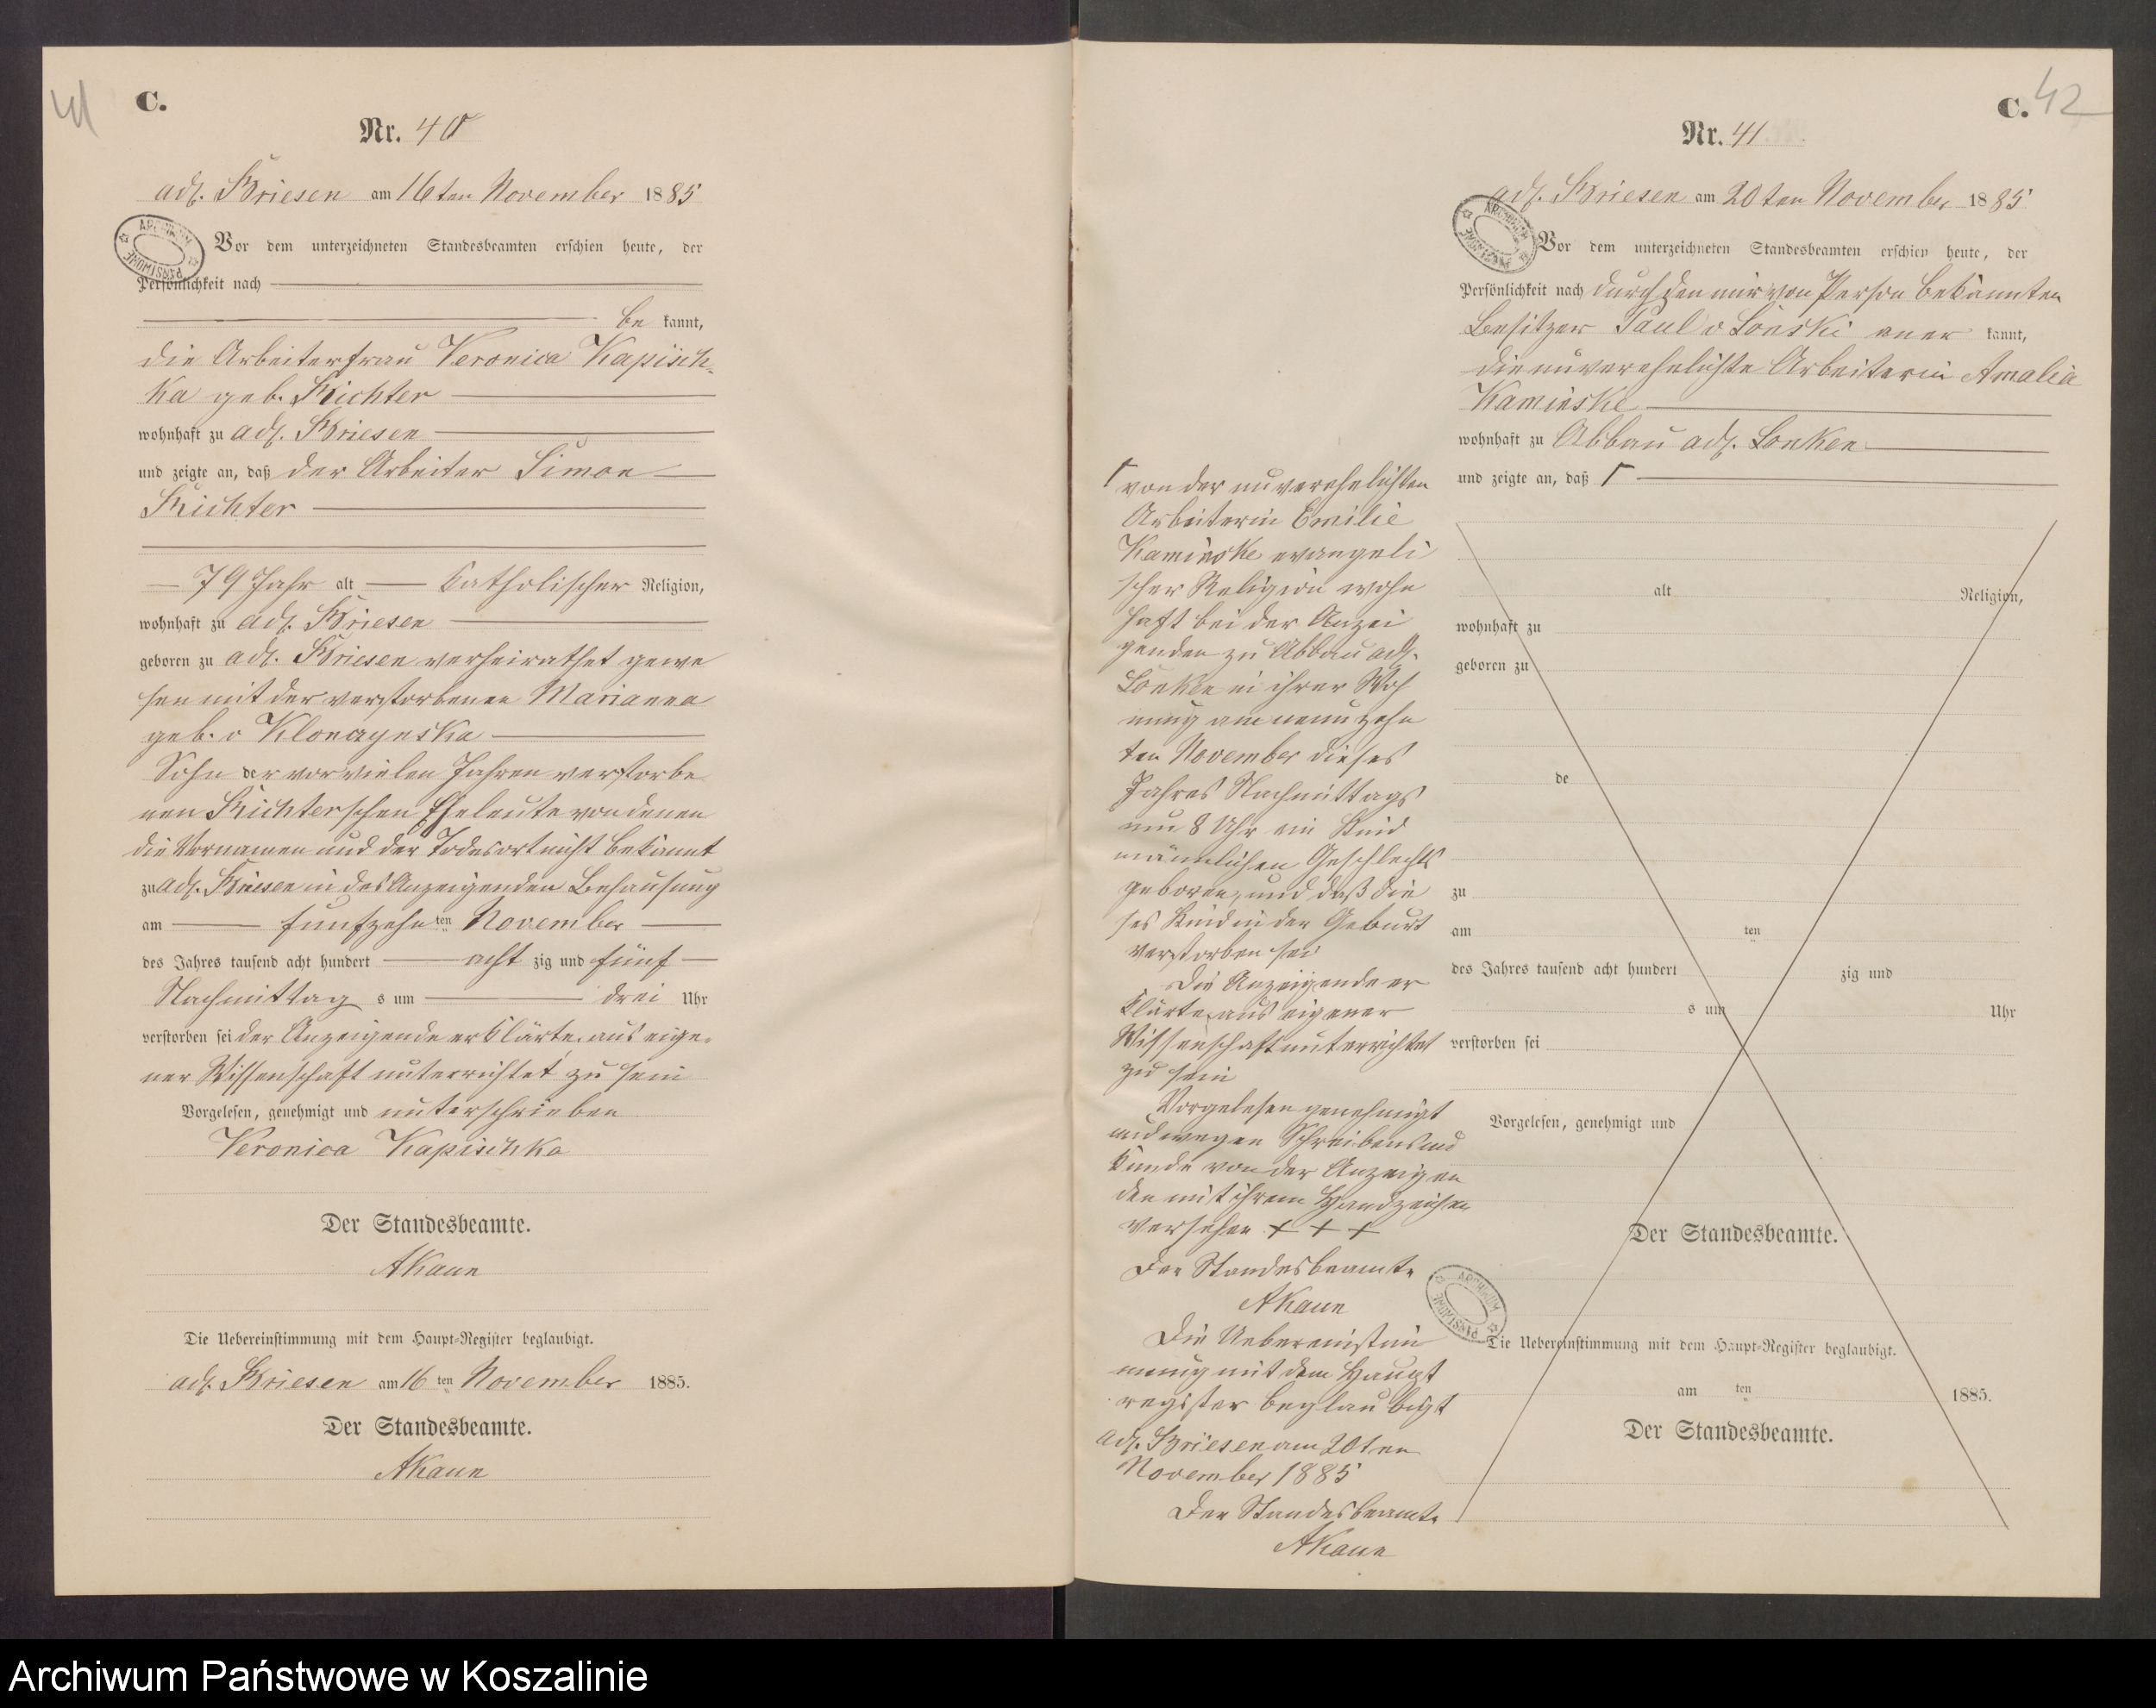 41
C.
Nr. 40
adl. Briesen am 16ten November 1885
Vor dem unterzeichneten Standesbeamten erschien heute, der
Persönlichkeit nach
be kannt,
die Arbeiterfrau Veronica Kapisch-
ka geb. Richter
wohnhaft zu adl. Briesen
und zeigte an, daß der Arbeiter Simon
Richter
79 Jahr alt katholischer Religion,
wohnhaft zu adl. Briesen
geboren zu adl. Briesen verheirathet gewe
sen mit der verstorbenen Marianna
geb. v Klonczynska
Sohn der vor vielen Jahren verstorbe
nen Richterschen Eheleute von denen
die Vornamen und der Todesort nicht bekannt
zu adl. Briesen in des Anzeigenden Behausung
am fünfzehn ten November
des Jahres tausend acht hundert acht zig und fünf
Nachmittag s um drei Uhr
verstorben sei der Anzeigende erklärte, aus eige-
ner Wissenschaft unterrichtet zu sein
Vorgelesen, genehmigt und unterschrieben
Veronica Kapischka
Der Standesbeamte.
AKaun
Die Uebereinstimmung mit dem Haupt-Register beglaubigt.
adl. Briesen am 16 ten November 1885.
Der Standesbeamte.
AKaun
C. 42
Nr. 41
adl. Briesen am 20ten November 1885
Vor dem unterzeichneten Standesbeamten erschien heute, der
Persönlichkeit nach durch den mir von Person bekannten
Besitzer Paul v Lonski aner kannt,
die unverehelichte Arbeiterin Amalia
Kaminske
wohnhaft zu Abbau adl. Lonken
und zeigte an, daß Γ
Γ von der unverehelichten
Arbeiterin Emilie
Kaminske evangeli
scher Religion wohn
haft bei der Anzei
genden zu Abbau adl.
Lonken in ihrer Woh
nung am neunzehn
ten November dieses
Jahres Nachmittags
um 8 Uhr ein Kind
männlichen Geschlechts
geboren, und daß die
ses Kind in der Geburt
verstorben sei
Die Anzeigende er
klärte, aus eigener
Wissenschaft unterrichtet
zu sein
Vorgelesen genehmigt
und wegen Schreibensun
kunde von der Anzeigen
den mit ihrem Handzeichen
versehen + + +
Der Standesbeamte
AKaun
Die Uebereinstim
mung mit dem Haupt
register beglaubigt
adl. Briesen am 20ten
November 1885
Der Standesbeamte
AKaun
alt Religion,
wohnhaft zu
geboren zu
de
zu
am ten
des Jahres tausend acht hundert zig und
s um Uhr
verstorben sei
Vorgelesen, genehmigt und
Der Standesbeamte.
Die Uebereinstimmung mit dem Haupt-Register beglaubigt.
am ten 1885.
Der Standesbeamte.
Archiwum Państwowe w Koszalinie